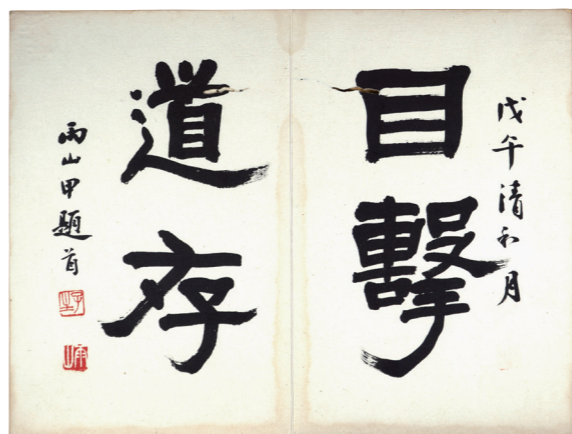 戊午清和月
目擊
道存
雨山甲題首